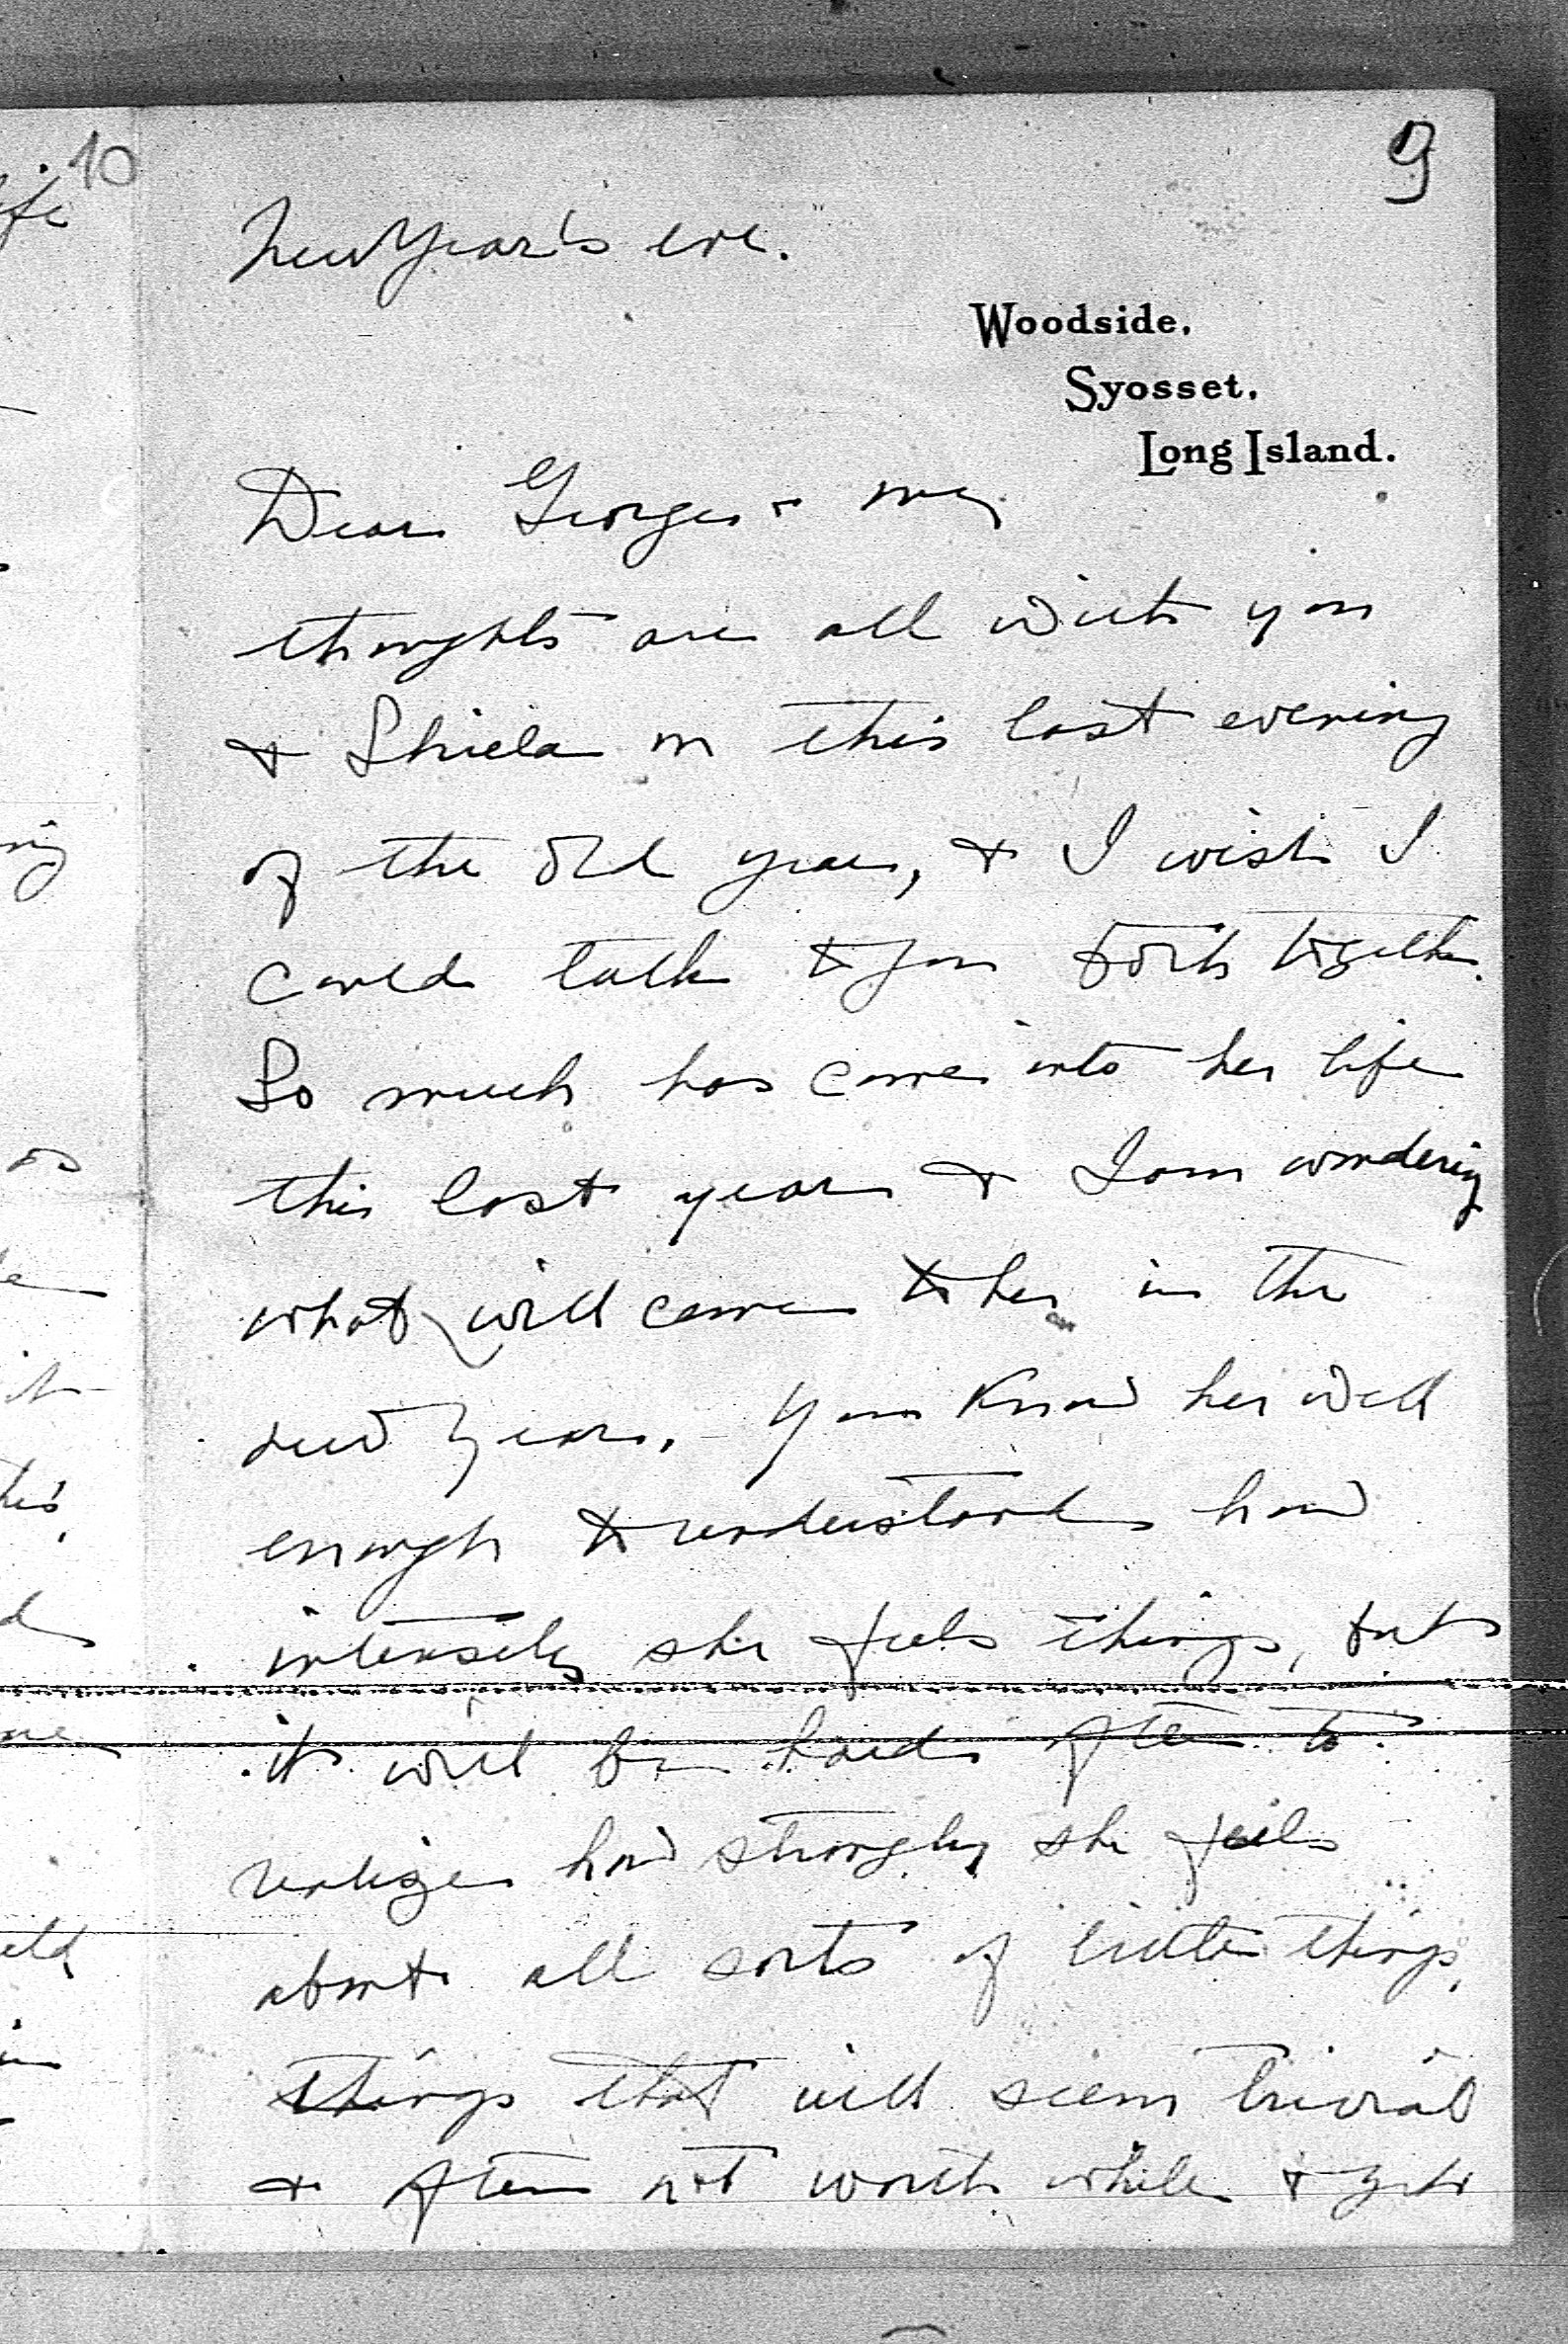 9
New Year's eve.
Woodside.
Syosset.
Long Island.
Dear George & my
thoughts are all with you
& Shiela on this last evening
of the old year, & I wish I
could talk to you both together.
So much has come into her life
this last year & I am wondering
what will come to her in the
new Year. You know her well
enough to understand how
intensely she feels things, but
it will be hard often to
realize how strongly she feels
about all sorts of little things,
things that will seem trivial
& often not worth while & yet
10